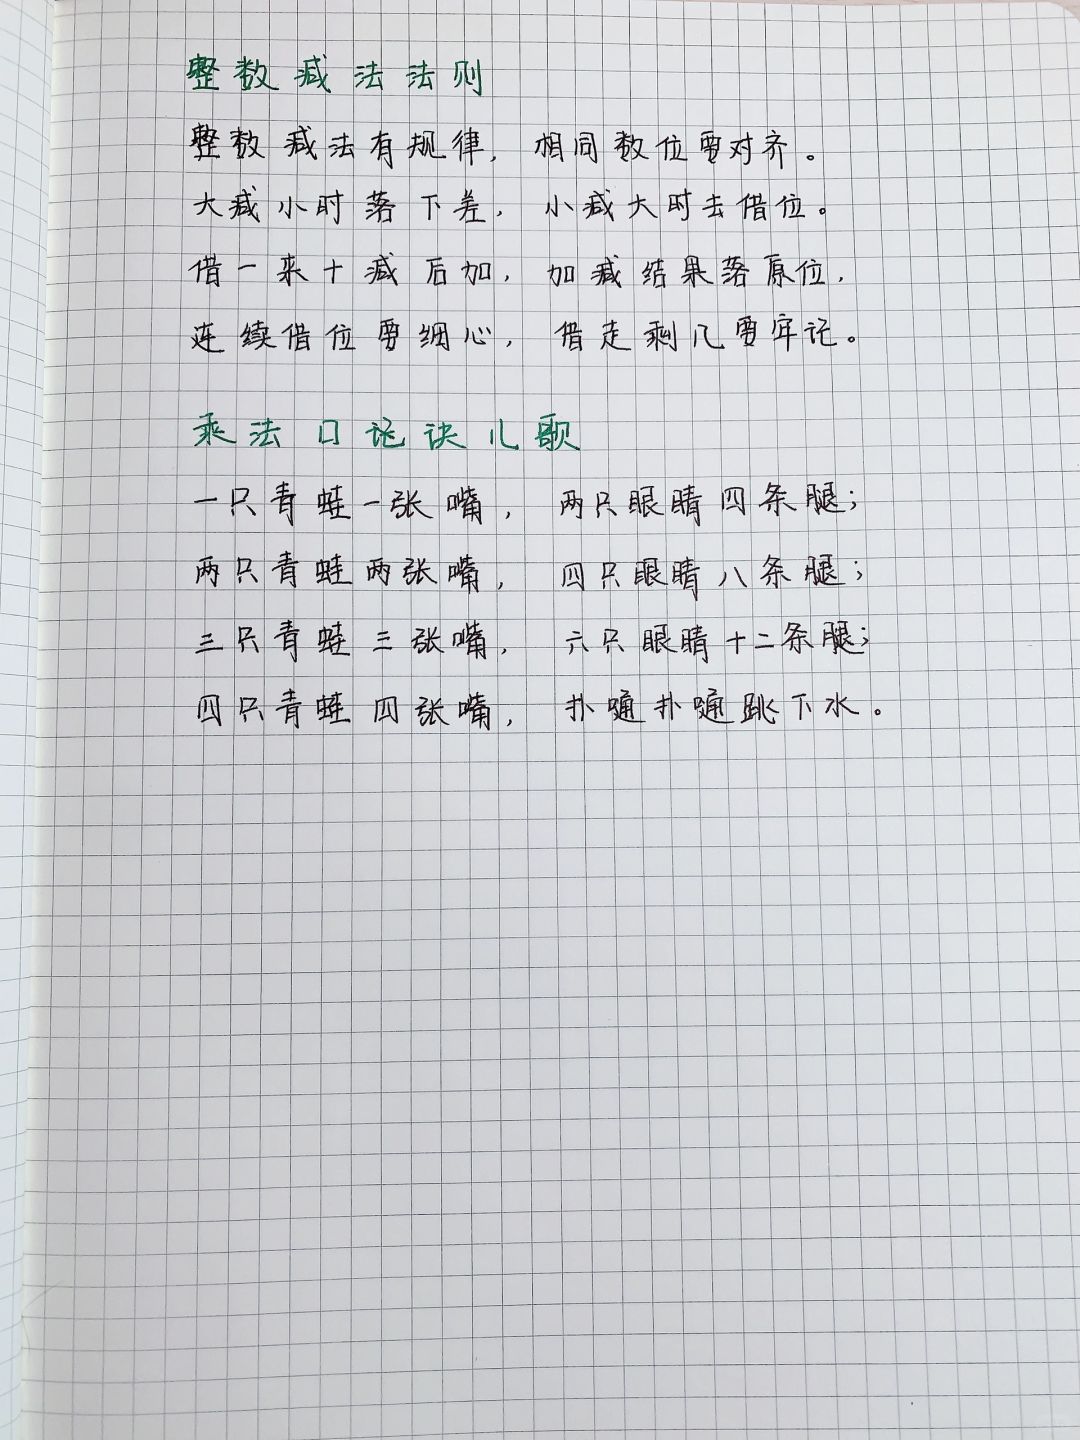 整数减法法则
整数减法有规律，相同数位要对齐。
大减小时落下差，小减大时去借位。
借一来十减后加，加减结果落原位，
连续借位要细心，借走剩几要牢记。
乘法口诀儿歌
一只青蛙一张嘴，两只眼睛四条腿；
两只青蛙两张嘴，四只眼睛八条腿；
三只青蛙三张嘴，六只眼睛十二条腿；
四只青蛙四张嘴，扑嗵扑嗵跳下水。